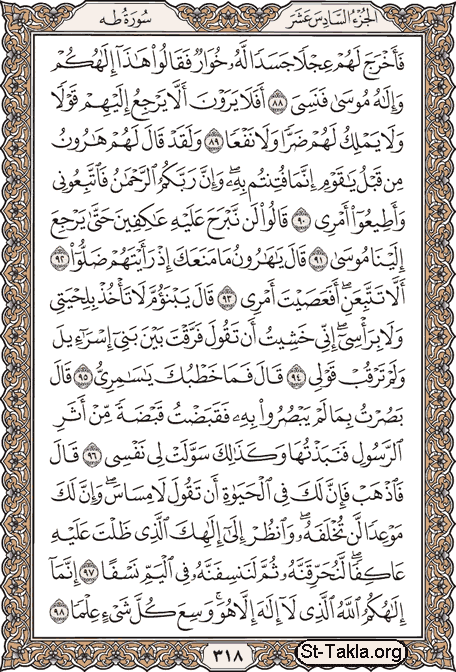 الجزء السادس عشر
سورة طه
فَأَخْرَجَ لَهُمْ عِجْلًا جَسَدًا لَّهُۥ خُوَارٌ فَقَالُوا۟ هَٰذَآ إِلَٰهُكُمْ
وَإِلَٰهُ مُوسَىٰ فَنَسِىَ ٨٨ أَفَلَا يَرَوْنَ أَلَّا يَرْجِعُ إِلَيْهِمْ قَوْلًا
وَلَا يَمْلِكُ لَهُمْ ضَرًّا وَلَا نَفْعًا ٨٩ وَلَقَدْ قَالَ لَهُمْ هَٰرُونُ
مِن قَبْلُ يَٰقَوْمِ إِنَّمَا فُتِنتُم بِهِۦ ۖ وَإِنَّ رَبَّكُمُ ٱلرَّحْمَٰنُ فَٱتَّبِعُونِى
وَأَطِيعُوٓا۟ أَمْرِى ٩٠ قَالُوا۟ لَن نَّبْرَحَ عَلَيْهِ عَٰكِفِينَ حَتَّىٰ يَرْجِعَ
إِلَيْنَا مُوسَىٰ ٩١ قَالَ يَٰهَٰرُونُ مَا مَنَعَكَ إِذْ رَأَيْتَهُمْ ضَلُّوٓا۟ ٩٢
أَلَّا تَتَّبِعَنِ ۖ أَفَعَصَيْتَ أَمْرِى ٩٣ قَالَ يَبْنَؤُمَّ لَا تَأْخُذْ بِلِحْيَتِى
وَلَا بِرَأْسِىٓ ۖ إِنِّى خَشِيتُ أَن تَقُولَ فَرَّقْتَ بَيْنَ بَنِىٓ إِسْرَٰٓءِيلَ
وَلَمْ تَرْقُبْ قَوْلِى ٩٤ قَالَ فَمَا خَطْبُكَ يَٰسَٰمِرِىُّ ٩٥ قَالَ
بَصُرْتُ بِمَا لَمْ يَبْصُرُوا۟ بِهِۦ فَقَبَضْتُ قَبْضَةً مِّنْ أَثَرِ
ٱلرَّسُولِ فَنَبَذْتُهَا وَكَذَٰلِكَ سَوَّلَتْ لِى نَفْسِى ٩٦ قَالَ
فَٱذْهَبْ فَإِنَّ لَكَ فِى ٱلْحَيَوٰةِ أَن تَقُولَ لَا مِسَاسَ ۖ وَإِنَّ لَكَ
مَوْعِدًا لَّن تُخْلَفَهُۥ ۖ وَٱنظُرْ إِلَىٰٓ إِلَٰهِكَ ٱلَّذِى ظَلْتَ عَلَيْهِ
عَاكِفًا ۖ لَّنُحَرِّقَنَّهُۥ ثُمَّ لَنَنسِفَنَّهُۥ فِى ٱلْيَمِّ نَسْفًا ٩٧ إِنَّمَآ
إِلَٰهُكُمُ ٱللَّهُ ٱلَّذِى لَآ إِلَٰهَ إِلَّا هُوَ ۚ وَسِعَ كُلَّ شَىْءٍ عِلْمًا ٩٨
٣١٨
St-Takla.org